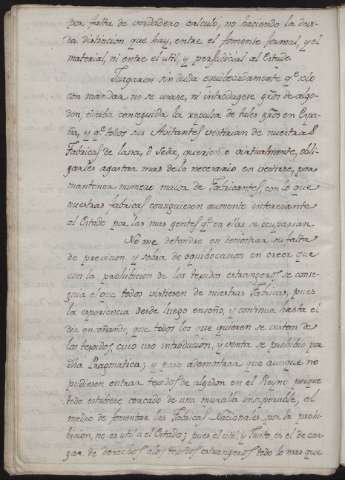 por falta de verdadero calculo, no haciendo la devi-
da distincion que hay, entre el fomento formal, y el
material, ni entre el util, y perjudicial al Estado.
Juzgaron sin duda equibocadamente qe. solo
con mandar no se usase, ni introdugese gros. de algo-
don, estaba conseguida la repulsa de tales gros. en Espa-
ña, y qe. todos sus Avitantes vestirian de nuestras
Fabricas de lana, ò seda, queriendo virtualmente, obli-
garles a gastar mas de lo necesario en vestirse, por
mantener numero maior de Fabricantes, con lo que
nuestras fabricas consiguiesen aumento interesante
al Estado por las mas gentes qe. en ellas se ocupasian.
No me detendre en demostrar su falta
de prevision y sobra de equibocacion en creer que
con la prohibicion de los tejidos extrangeros se conse-
guia el que todos vistiesen de nuestras Fabricas, pues
la experiencia desde luego enseño, y continua hasta el
dia enseñando, que todos los que quieren se visten de
los tejidos, cuio uso introducion, y venta se prohibio por
dha Pragmatica; y paso a demostrar que aunque no
pudiesen entrar tejidos de algodon en el Reyno porque
todo estubiese cercado de una muralla insuperable, el
medio de fomentar las Fabricas Nacionales por la prohi-
bicion, no es util a el Estado; pues el util y fuerte es el de car-
gar de derechos a los tejidos extrangeros todo lo mas que